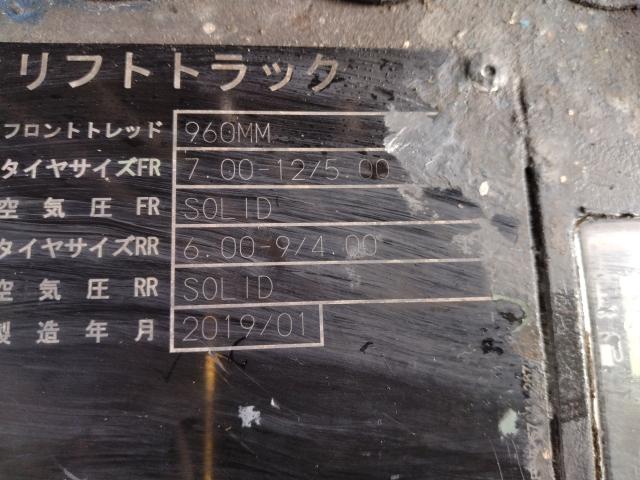 リフトトラック
フロントトレッド 960MM
タイヤサイズFR 7.00-12/5.00
空気圧FR SOLID
タイヤサイズRR 6.00-9/4.00
空気圧RR SOLID
製造年月 2019/01